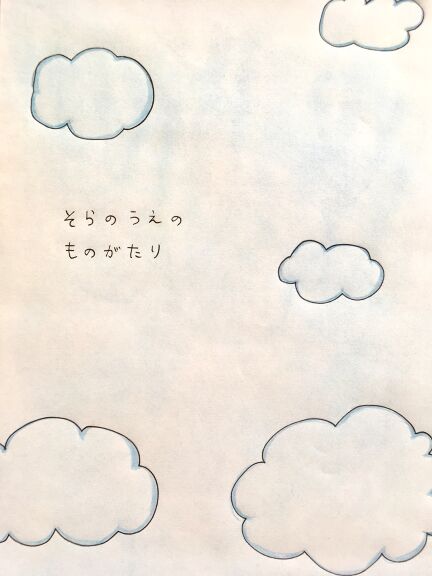 そらのうえの
ものがたり